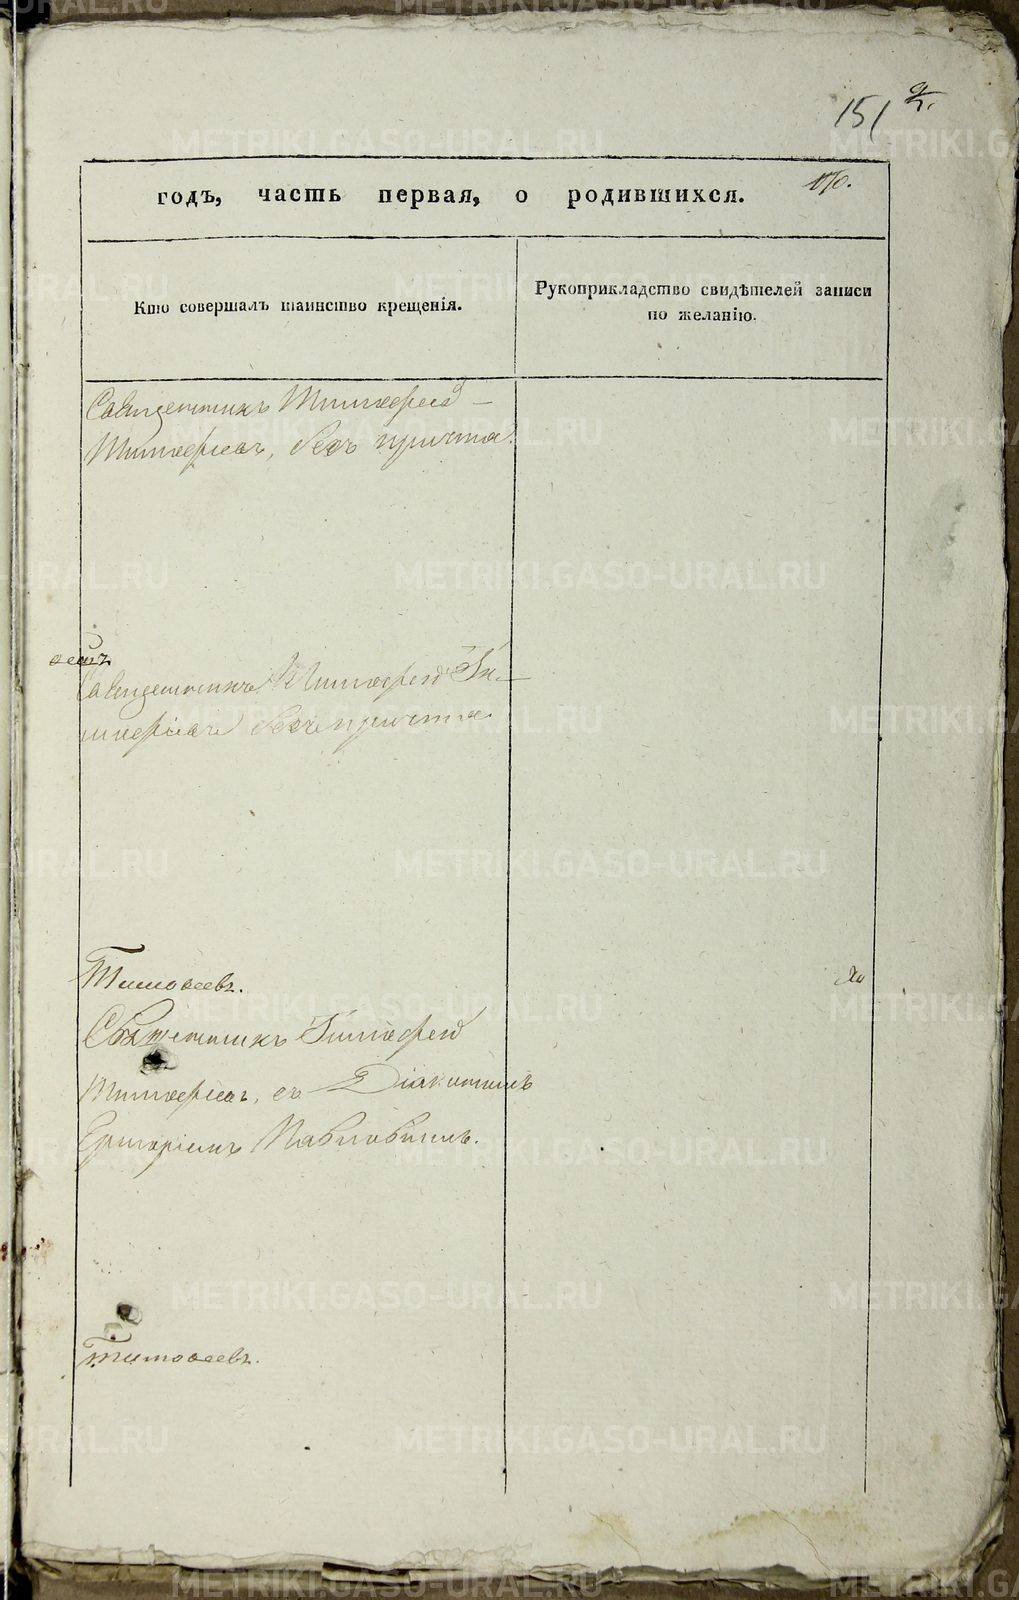 151
170.
годъ, часть первая, о родившихся.
Кто совершалъ таинство крещенія.
Рукоприкладство свидѣтелей записи
по желанію.
Священникъ Тимофей
Тимофеевъ, безъ причта.
Священникъ Тимофей Ти-
мофеевъ безъ причта.
Тимоѳеевъ.
Священникъ Тимофей
Тимофеевъ, съ Діакономъ
Григоріемъ Павловымъ.
Тимоѳеевъ.
METRIKI.GASO-URAL.RU